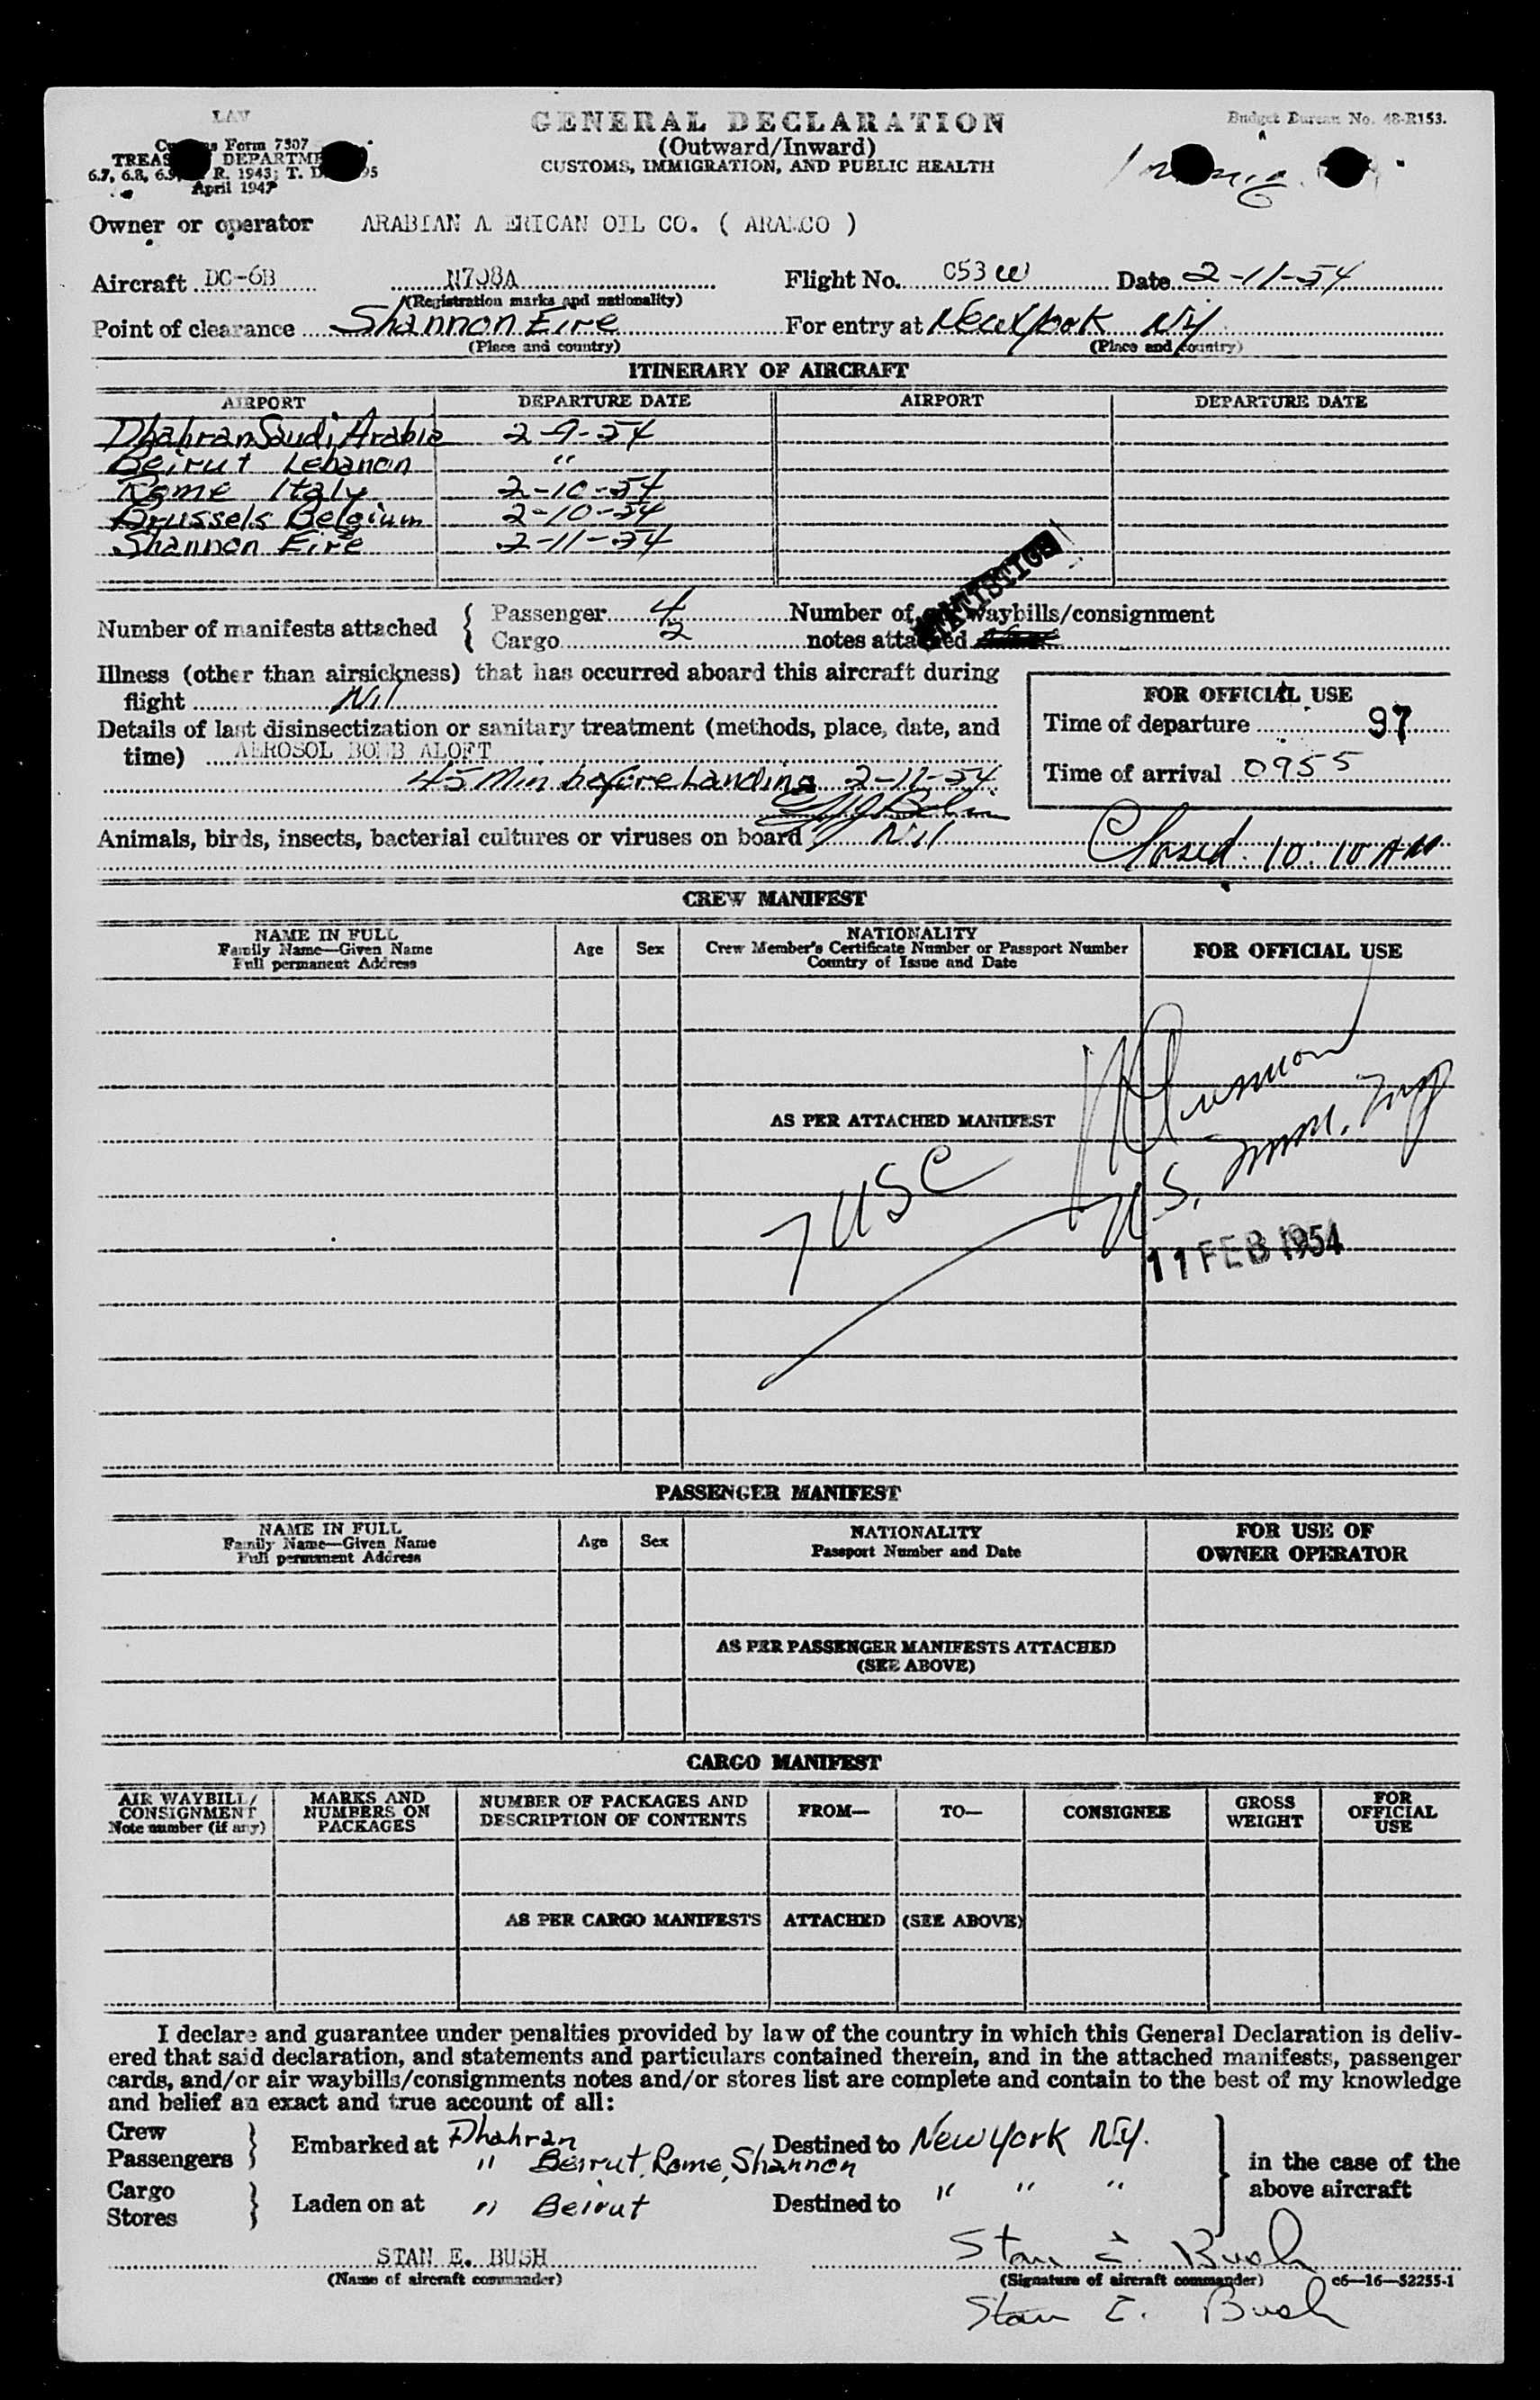 LAV
Form 7507
GENERAL DECLARATION
Budget Bureau No. 48-R153.
(Outward/Inward)
CUSTOMS, IMMIGRATION, AND PUBLIC HEALTH
6.7, 6.8, R. 1943; T. D.
April 1947
Owner or operator ARABIAN A ERICAN OIL CO. ( ARAMCO )
Aircraft DC-6B N708A Flight No. C53 W Date 2-11-54
(Registration marks and nationality)
Point of clearance Shannon Eire For entry at New York NY
(Place and country) (Place and country)
ITINERARY OF AIRCRAFT
AIRPORT DEPARTURE DATE AIRPORT DEPARTURE DATE
Dhahran Saudi Arabia 2-9-54
Beirut Lebanon "
Rome Italy 2-10-54
Brussels Belgium 2-10-54
Shannon Eire 2-11-54
STATISTICS
Number of manifests attached { Passenger 4 Number of waybills/consignment
Cargo 2 notes attached
Illness (other than airsickness) that has occurred aboard this aircraft during
flight Nil
FOR OFFICIAL USE
Details of last disinsectization or sanitary treatment (methods, place, date, and
Time of departure 97
time) AEROSOL BOMB ALOFT
45 Min before Landing 2-11-54
Time of arrival 0955
Animals, birds, insects, bacterial cultures or viruses on board Nil
Closed 10 10 AM
CREW MANIFEST
NAME IN FULL
Family Name—Given Name
Full permanent Address
Age Sex
NATIONALITY
Crew Member's Certificate Number or Passport Number
Country of Issue and Date
FOR OFFICIAL USE
AS PER ATTACHED MANIFEST
7 USC
U.S. Imm. Insp
11 FEB 1954
PASSENGER MANIFEST
NAME IN FULL
Family Name—Given Name
Full permanent Address
Age Sex
NATIONALITY
Passport Number and Date
FOR USE OF
OWNER OPERATOR
AS PER PASSENGER MANIFESTS ATTACHED
(SEE ABOVE)
CARGO MANIFEST
AIR WAYBILL/
CONSIGNMENT
Note number (if any)
MARKS AND
NUMBERS ON
PACKAGES
NUMBER OF PACKAGES AND
DESCRIPTION OF CONTENTS
FROM— TO— CONSIGNEE
GROSS
WEIGHT
FOR
OFFICIAL
USE
AS PER CARGO MANIFESTS ATTACHED (SEE ABOVE)
I declare and guarantee under penalties provided by law of the country in which this General Declaration is deliv-
ered that said declaration, and statements and particulars contained therein, and in the attached manifests, passenger
cards, and/or air waybills/consignments notes and/or stores list are complete and contain to the best of my knowledge
and belief an exact and true account of all:
Crew } Embarked at Dhahran Destined to New York NY.
Passengers " Beirut, Rome, Shannon in the case of the
Cargo } Laden on at " Beirut Destined to " " " above aircraft
Stores
STAN E. BUSH Stan E. Bush
(Name of aircraft commander) (Signature of aircraft commander) c6—16—52255-1
Stan E. Bush